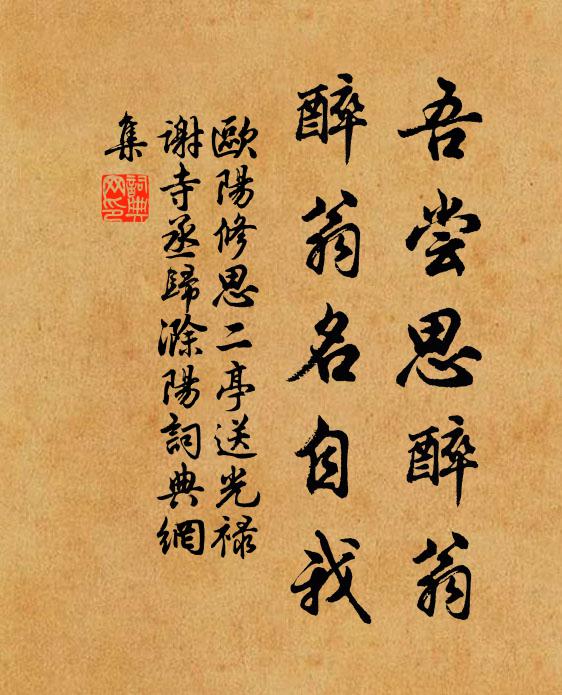 吾嘗思醉翁
醉翁名自我
歐陽修思二亭送光禄
謝寺丞歸滁陽詞典網
集
詞典
网印